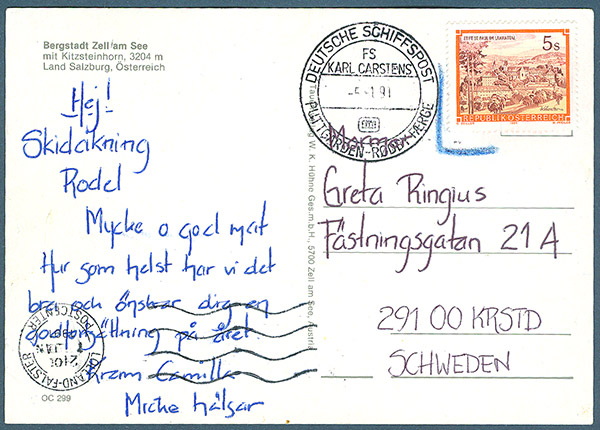 Bergstadt Zell am See
mit Kitzsteinhorn, 3204 m
Land Salzburg, Österreich
Hej!
Skidåkning
Rodel
Mycke o god mat
Hur som helst har vi det
bra och önskar dig en
godfortsättning på året.
Kram Camilla
Micke hälsar
OC 299
LOLLAND-FALSTER
POSTCENTER
JAN
DEUTSCHE SCHIFFSPOST
FS
KARL CARSTENS
PUTTGARDEN-RØDBY FÆRGE
W. K. Hühne Ges.m.b.H., 5700 Zell am See, Austria
5s
REPUBLIK ÖSTERREICH
Greta Ringius
Fästningsgatan 21 A
291 00 KRSTD
SCHWEDEN